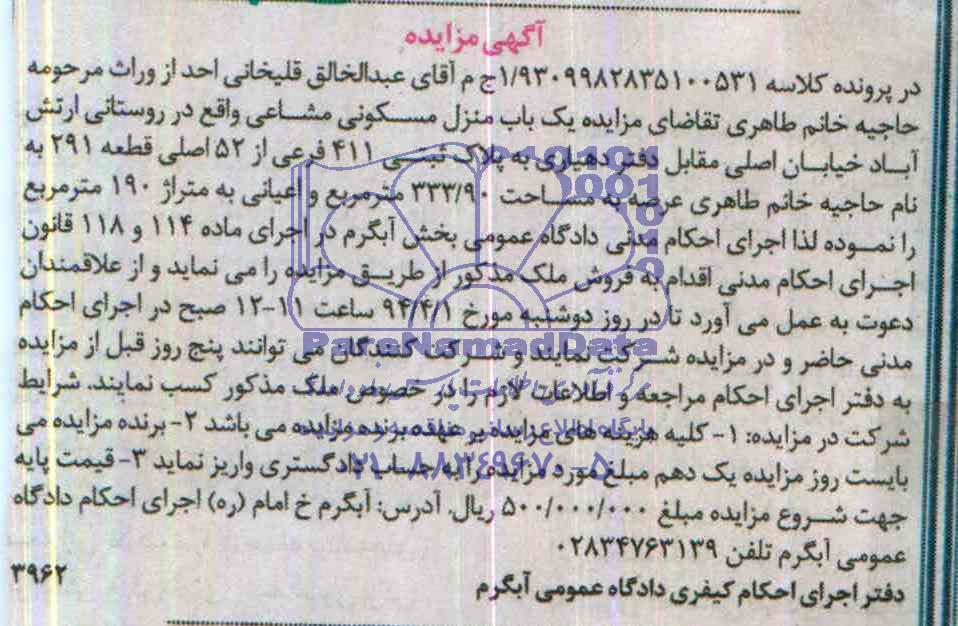 آگهی مزایده
در پرونده کلاسه ۱/۹۳۰۹۹۸۲۸۳۵۱۰۰۵۳۱ج م آقای عبدالخالق قلیخانی احد از وراث مرحومه
حاجیه خانم طاهری تقاضای مزایده یک باب منزل مسکونی مشاعی واقع در روستانی ارتش
آباد خیابان اصلی مقابل دفتر دهیاری به پلاک ثبتی ۴۱۱ فرعی از ۵۲ اصلی قطعه ۲۹۱ به
نام حاجیه خانم طاهری عرصه به مساحت ۳۳۳/۹۰ مترمربع و اعیانی به متراژ ۱۹۰ مترمربع
را نموده لذا اجرای احکام مدنی دادگاه عمومی بخش آبگرم در اجرای ماده ۱۱۴ و ۱۱۸ قانون
اجرای احکام مدنی اقدام به فروش ملک مذکور از طریق مزایده را می نماید و از علاقمندان
دعوت به عمل می آورد تا در روز دوشنبه مورخ ۹۴/۴/۱ ساعت ۱۱-۱۲ صبح در اجرای احکام
مدنی حاضر و در مزایده شرکت نمایند و شرکت کنندگان می توانند پنج روز قبل از مزایده
به دفتر اجرای احکام مراجعه و اطلاعات لازم را در خصوص ملک مذکور کسب نمایند. شرایط
شرکت در مزایده: ۱- کلیه هزینه های مزایده بر عهده برنده مزایده می باشد ۲- برنده مزایده می
بایست روز مزایده یک دهم مبلغ مورد مزایده را به حساب دادگستری واریز نماید ۳- قیمت پایه
جهت شروع مزایده مبلغ ۵۰۰/۰۰۰/۰۰۰ ریال. آدرس: آبگرم خ امام (ره) اجرای احکام دادگاه
عمومی آبگرم تلفن ۰۲۸۳۴۷۶۳۱۳۹
دفتر اجرای احکام کیفری دادگاه عمومی آبگرم
۳۹۶۲
ParsNamadData
۰۲۱-۸۸۳۴۹۶۷۰-۵